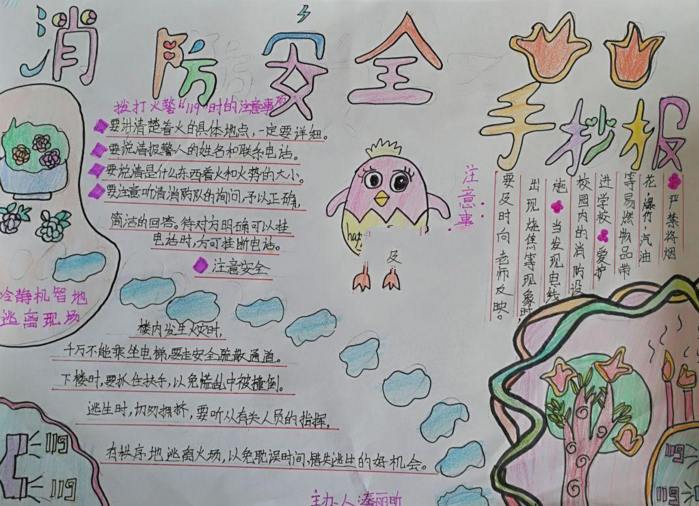 消防安全
手抄报
拨打火警"119"时的注意事
要讲清楚着火的具体地点,一定要详细。
要说清报警人的姓名和联系电话。
要说清是什么东西着火和火势的大小。
要注意听清消防队的询问,予以正确,
简洁的回答。待对方明确可以挂
电话时,方可挂断电话。
注意安全
冷静机智地
逃离现场
楼内发生火灾时,
千万不能乘坐电梯,要走安全疏散通道。
下楼时,要抓住扶手,以免慌乱中被撞倒。
逃生时,切勿拥挤,要听从有关人员的指挥,
有秩序地逃离火场,以免耽误时间,错失逃生的好机会。
注意事
严禁将烟
花,爆竹,汽油
等易燃物品带
进学校 爱护
校园内的消防设
施 当发现电线
出现烧焦等现象时,
要及时向老师反映。
及
119
119
119
119
主办人